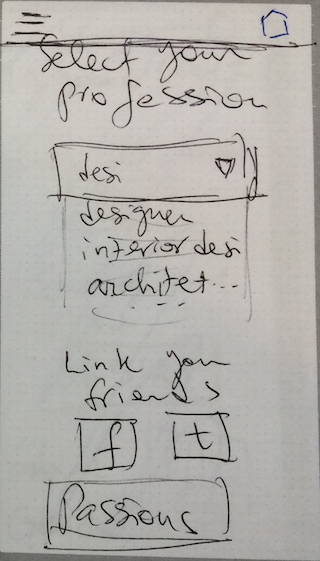 Select your
profession
desi
designer
interior desi
architet...
Link you
friends
f
t
Passions